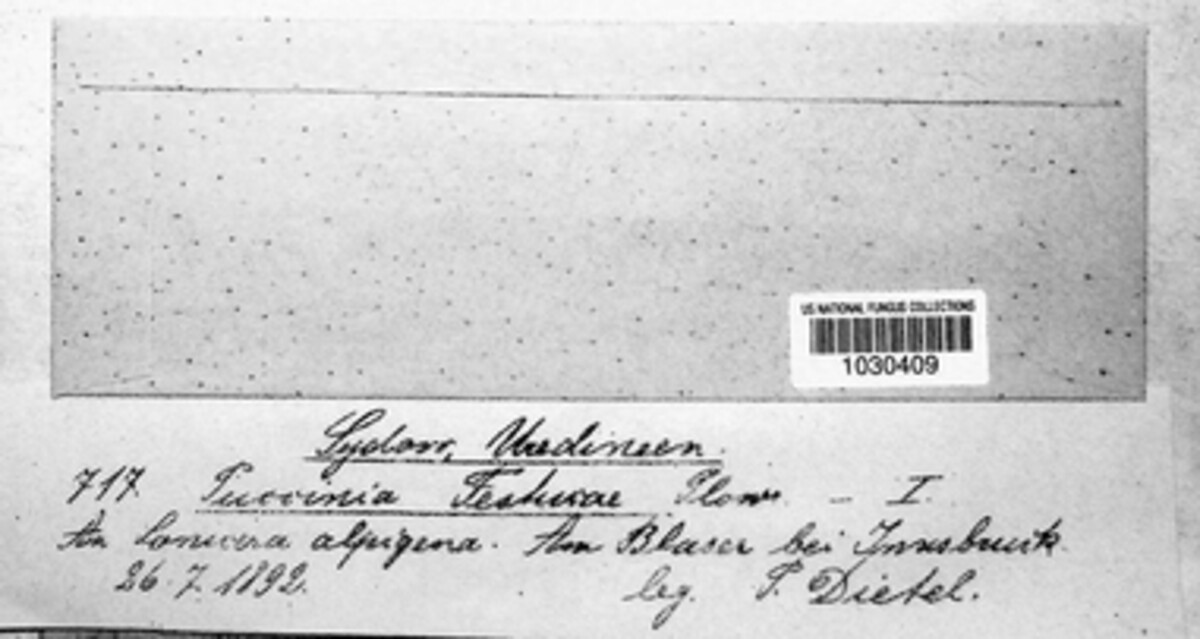 US NATIONAL FUNGUS COLLECTIONS
1030409
Sydow, Uredineen.
717. Puccinia Festucae Plowr. – I.
An Lonicera alpigena. Am Blaser bei Innsbruck.
26. 7. 1892. leg. P. Dietel.